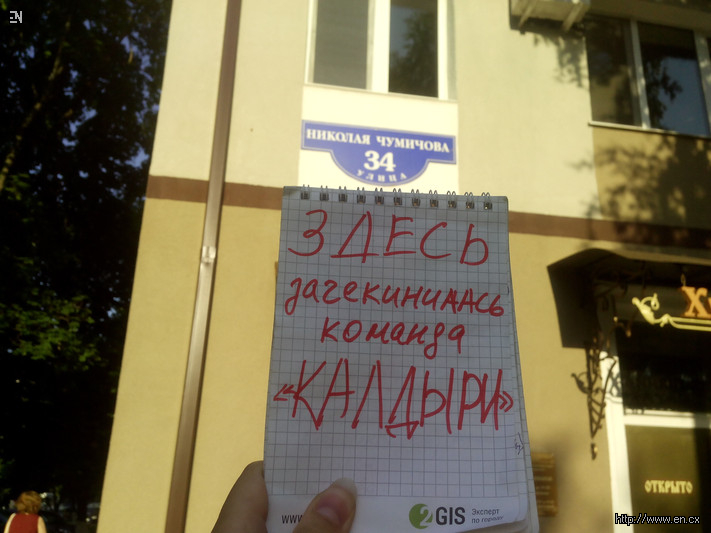 EN
НИКОЛАЯ ЧУМИЧОВА
34
УЛИЦА
ЗДЕСЬ
зачекинилась
команда
«КАЛДЫРИ»
www.
2GIS
Эксперт
по городу
ОТКРЫТО
http://www.en.cx